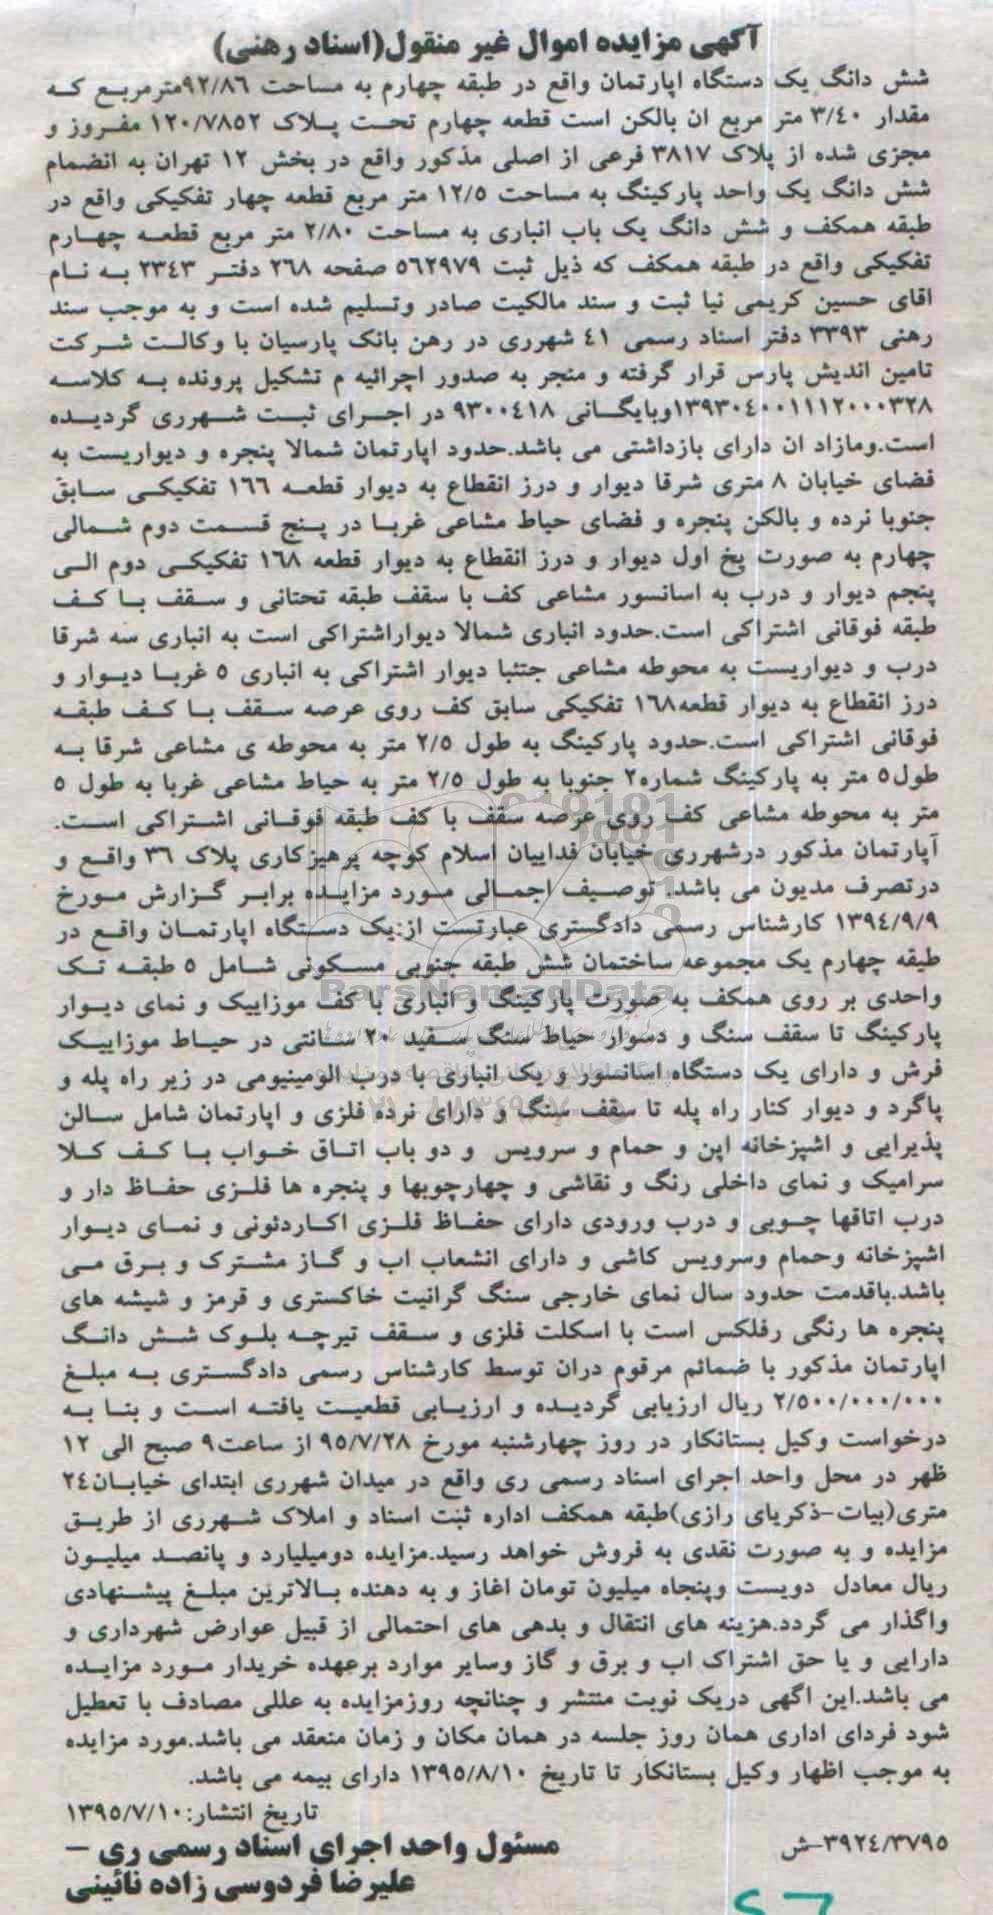 آگهی مزایده اموال غیر منقول(اسناد رهنی)
شش دانگ یک دستگاه اپارتمان واقع در طبقه چهارم به مساحت ۹۲/۸۶مترمربع که
مقدار ۳/۴۰ متر مربع ان بالکن است قطعه چهارم تحت پلاک ۱۲۰/۷۸۵۲ مفروز و
مجزی شده از پلاک ۳۸۱۷ فرعی از اصلی مذکور واقع در بخش ۱۲ تهران به انضمام
شش دانگ یک واحد پارکینگ به مساحت ۱۲/۵ متر مربع قطعه چهار تفکیکی واقع در
طبقه همکف و شش دانگ یک باب انباری به مساحت ۲/۸۰ متر مربع قطعه چهارم
تفکیکی واقع در طبقه همکف که ذیل ثبت ۵۶۲۹۷۹ صفحه ۲۶۸ دفتر ۲۳۴۳ به نام
اقای حسین کریمی نیا ثبت و سند مالکیت صادر وتسلیم شده است و به موجب سند
رهنی ۳۳۹۳ دفتر اسناد رسمی ۴۱ شهرری در رهن بانک پارسیان با وکالت شرکت
تامین اندیش پارس قرار گرفته و منجر به صدور اجرائیه م تشکیل پرونده به کلاسه
۱۳۹۳۰۴۰۰۱۱۱۲۰۰۰۳۲۸وبایگانی ۹۳۰۰۴۱۸ در اجرای ثبت شهرری گردیده
است.ومازاد ان دارای بازداشتی می باشد.حدود اپارتمان شمالا پنجره و دیواریست به
فضای خیابان ۸ متری شرقا دیوار و درز انقطاع به دیوار قطعه ۱۶۶ تفکیکی سابق
جنوبا نرده و بالکن پنجره و فضای حیاط مشاعی غربا در پنج قسمت دوم شمالی
چهارم به صورت پخ اول دیوار و درز انقطاع به دیوار قطعه ۱۶۸ تفکیکی دوم الی
پنجم دیوار و درب به اسانسور مشاعی کف با سقف طبقه تحتانی و سقف با کف
طبقه فوقانی اشتراکی است.حدود انباری شمالا دیواراشتراکی است به انباری سه شرقا
درب و دیواریست به محوطه مشاعی جتئبا دیوار اشتراکی به انباری ۵ غربا دیوار و
درز انقطاع به دیوار قطعه۱۶۸ تفکیکی سابق کف روی عرصه سقف با کف طبقه
فوقانی اشتراکی است.حدود پارکینگ به طول ۲/۵ متر به محوطه ی مشاعی شرقا به
طول۵ متر به پارکینگ شماره۲ جنوبا به طول ۲/۵ متر به حیاط مشاعی غربا به طول ۵
متر به محوطه مشاعی کف روی عرصه سقف با کف طبقه فوقانی اشتراکی است.
آپارتمان مذکور درشهرری خیابان فداییان اسلام کوچه پرهیزکاری پلاک ۳۶ واقع و
درتصرف مدیون می باشد. توصیف اجمالی مورد مزایده برابر گزارش مورخ
۱۳۹۴/۹/۹ کارشناس رسمی دادگستری عبارتست از:یک دستگاه اپارتمان واقع در
طبقه چهارم یک مجموعه ساختمان شش طبقه جنوبی مسکونی شامل ۵ طبقه تک
واحدی بر روی همکف به صورت پارکینگ و انباری با کف موزاییک و نمای دیوار
پارکینگ تا سقف سنگ و دسوار حیاط سنگ سفید ۲۰ سانتی در حیاط موزاییک
فرش و دارای یک دستگاه اسانسور و یک انباری با درب الومینیومی در زیر راه پله و
پاگرد و دیوار کنار راه پله تا سقف سنگ و دارای نرده فلزی و اپارتمان شامل سالن
پذیرایی و اشپزخانه اپن و حمام و سرویس و دو باب اتاق خواب با کف کلا
سرامیک و نمای داخلی رنگ و نقاشی و چهارچوبها و پنجره ها فلزی حفاظ دار و
درب اتاقها چوبی و درب ورودی دارای حفاظ فلزی اکاردئونی و نمای دیوار
اشپزخانه وحمام وسرویس کاشی و دارای انشعاب اب و گاز مشترک و برق می
باشد.باقدمت حدود سال نمای خارجی سنگ گرانیت خاکستری و قرمز و شیشه های
پنجره ها رنگی رفلکس است با اسکلت فلزی و سقف تیرچه بلوک شش دانگ
اپارتمان مذکور با ضمائم مرقوم دران توسط کارشناس رسمی دادگستری به مبلغ
۲/۵۰۰/۰۰۰/۰۰۰ ریال ارزیابی گردیده و ارزیابی قطعیت یافته است و بنا به
درخواست وکیل بستانکار در روز چهارشنبه مورخ ۹۵/۷/۲۸ از ساعت۹ صبح الی ۱۲
ظهر در محل واحد اجرای اسناد رسمی ری واقع در میدان شهرری ابتدای خیابان۲۴
متری(بیات-ذکریای رازی)طبقه همکف اداره ثبت اسناد و املاک شهرری از طریق
مزایده و به صورت نقدی به فروش خواهد رسید.مزایده دومیلیارد و پانصد میلیون
ریال معادل دویست وپنجاه میلیون تومان اغاز و به دهنده بالاترین مبلغ پیشنهادی
واگذار می گردد.هزینه های انتقال و بدهی های احتمالی از قبیل عوارض شهرداری و
دارایی و یا حق اشتراک اب و برق و گاز وسایر موارد برعهده خریدار مورد مزایده
می باشد.این اگهی دریک نوبت منتشر و چنانچه روزمزایده به عللی مصادف با تعطیل
شود فردای اداری همان روز جلسه در همان مکان و زمان منعقد می باشد.مورد مزایده
به موجب اظهار وکیل بستانکار تا تاریخ ۱۳۹۵/۸/۱۰ دارای بیمه می باشد.
تاریخ انتشار:۱۳۹۵/۷/۱۰
۳۹۲۴/۳۷۹۵-ش
مسئول واحد اجرای اسناد رسمی ری -
علیرضا فردوسی زاده نائینی
ParsNamadData